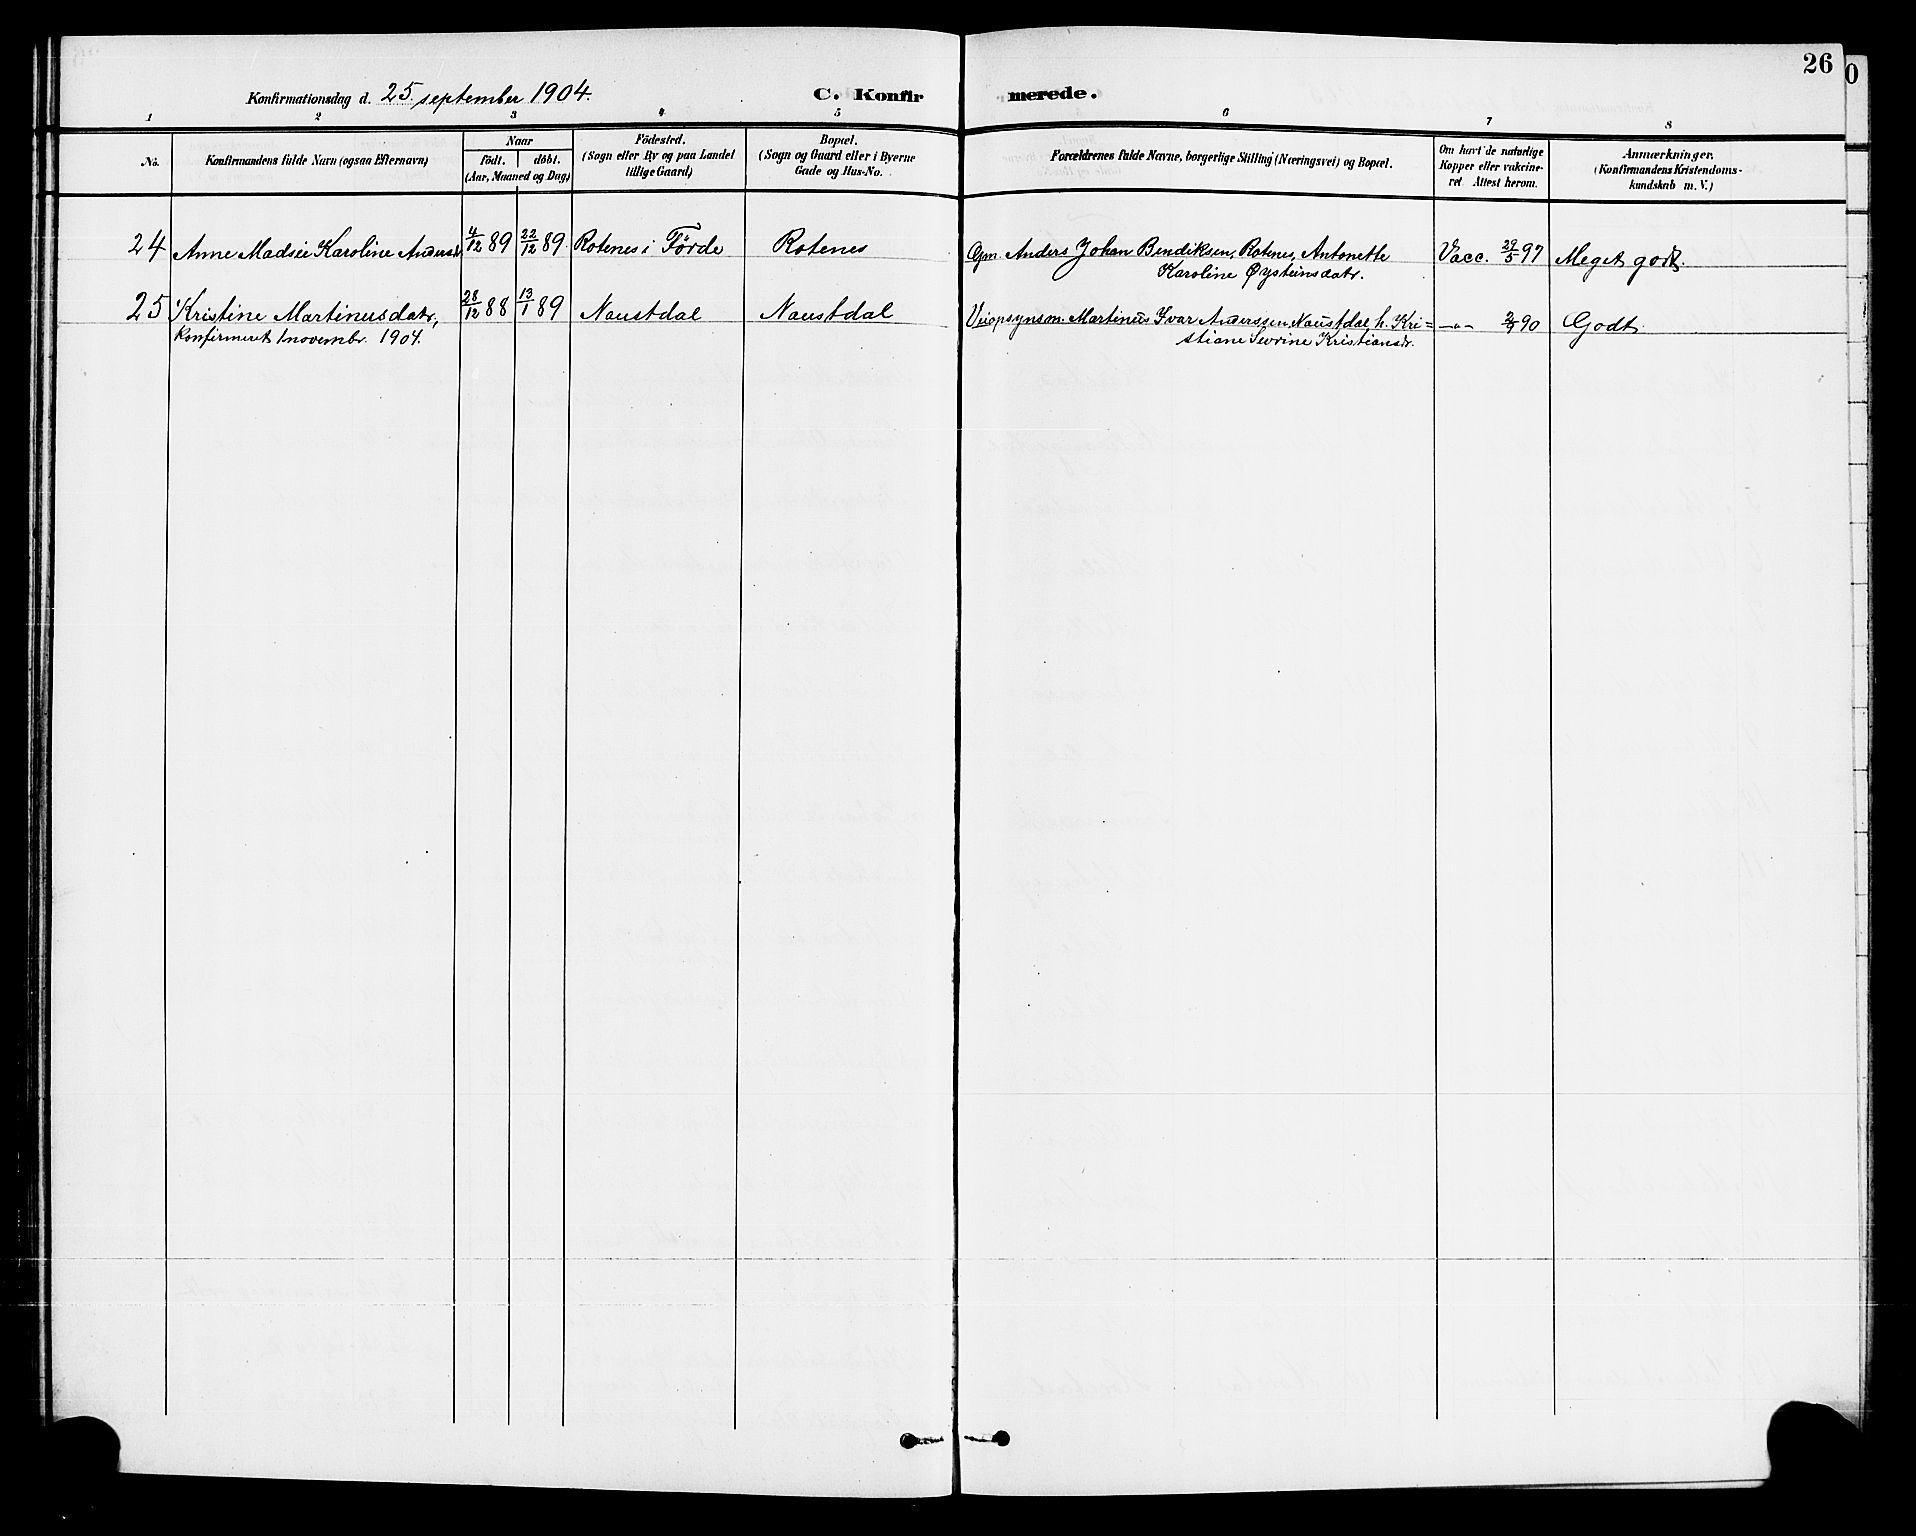 26
Konfirmationsdag d. 25. september 1904.
C. Konfir merede.
1 2 3 4 5 6 7 8
No.
Konfirmandens fulde Navn (ogsaa Efternavn)
Naar
födt. döbt.
(Aar, Maaned og Dag)
Födested.
(Sogn eller By og paa Landet
tillige Gaard)
Bopæl.
(Sogn og Gaard eller i Byerne
Gade og Hus-No.
Forældrenes fulde Navne, borgerlige Stilling (Næringsvei) og Bopæl.
Om havt de naturlige
Kopper eller vakcine-
ret. Attest herom.
Anmærkninger.
(Konfirmandens Kristendoms-
kundskab m. V.)
24 Anne Karoline Andersd. 4/12 89 22/12 89. Rotenes i Förde Rotenes Gm. Anders Johan Bendiksen, Rotenes, Antonette Vacc. 29/5 97 Meget godt.
Karoline Øysteinsdatr.
25 Kristine Martinusdatr, 28/12 88 13/1 89 Naustdal Naustdal Veiopsynsm. Martinus Ivar Anderssen, Naustdal, h. Kri= —"— 90 Godt.
konfirmeret 1 novembr. 1904. stiane Sevrine Kristiansdr.